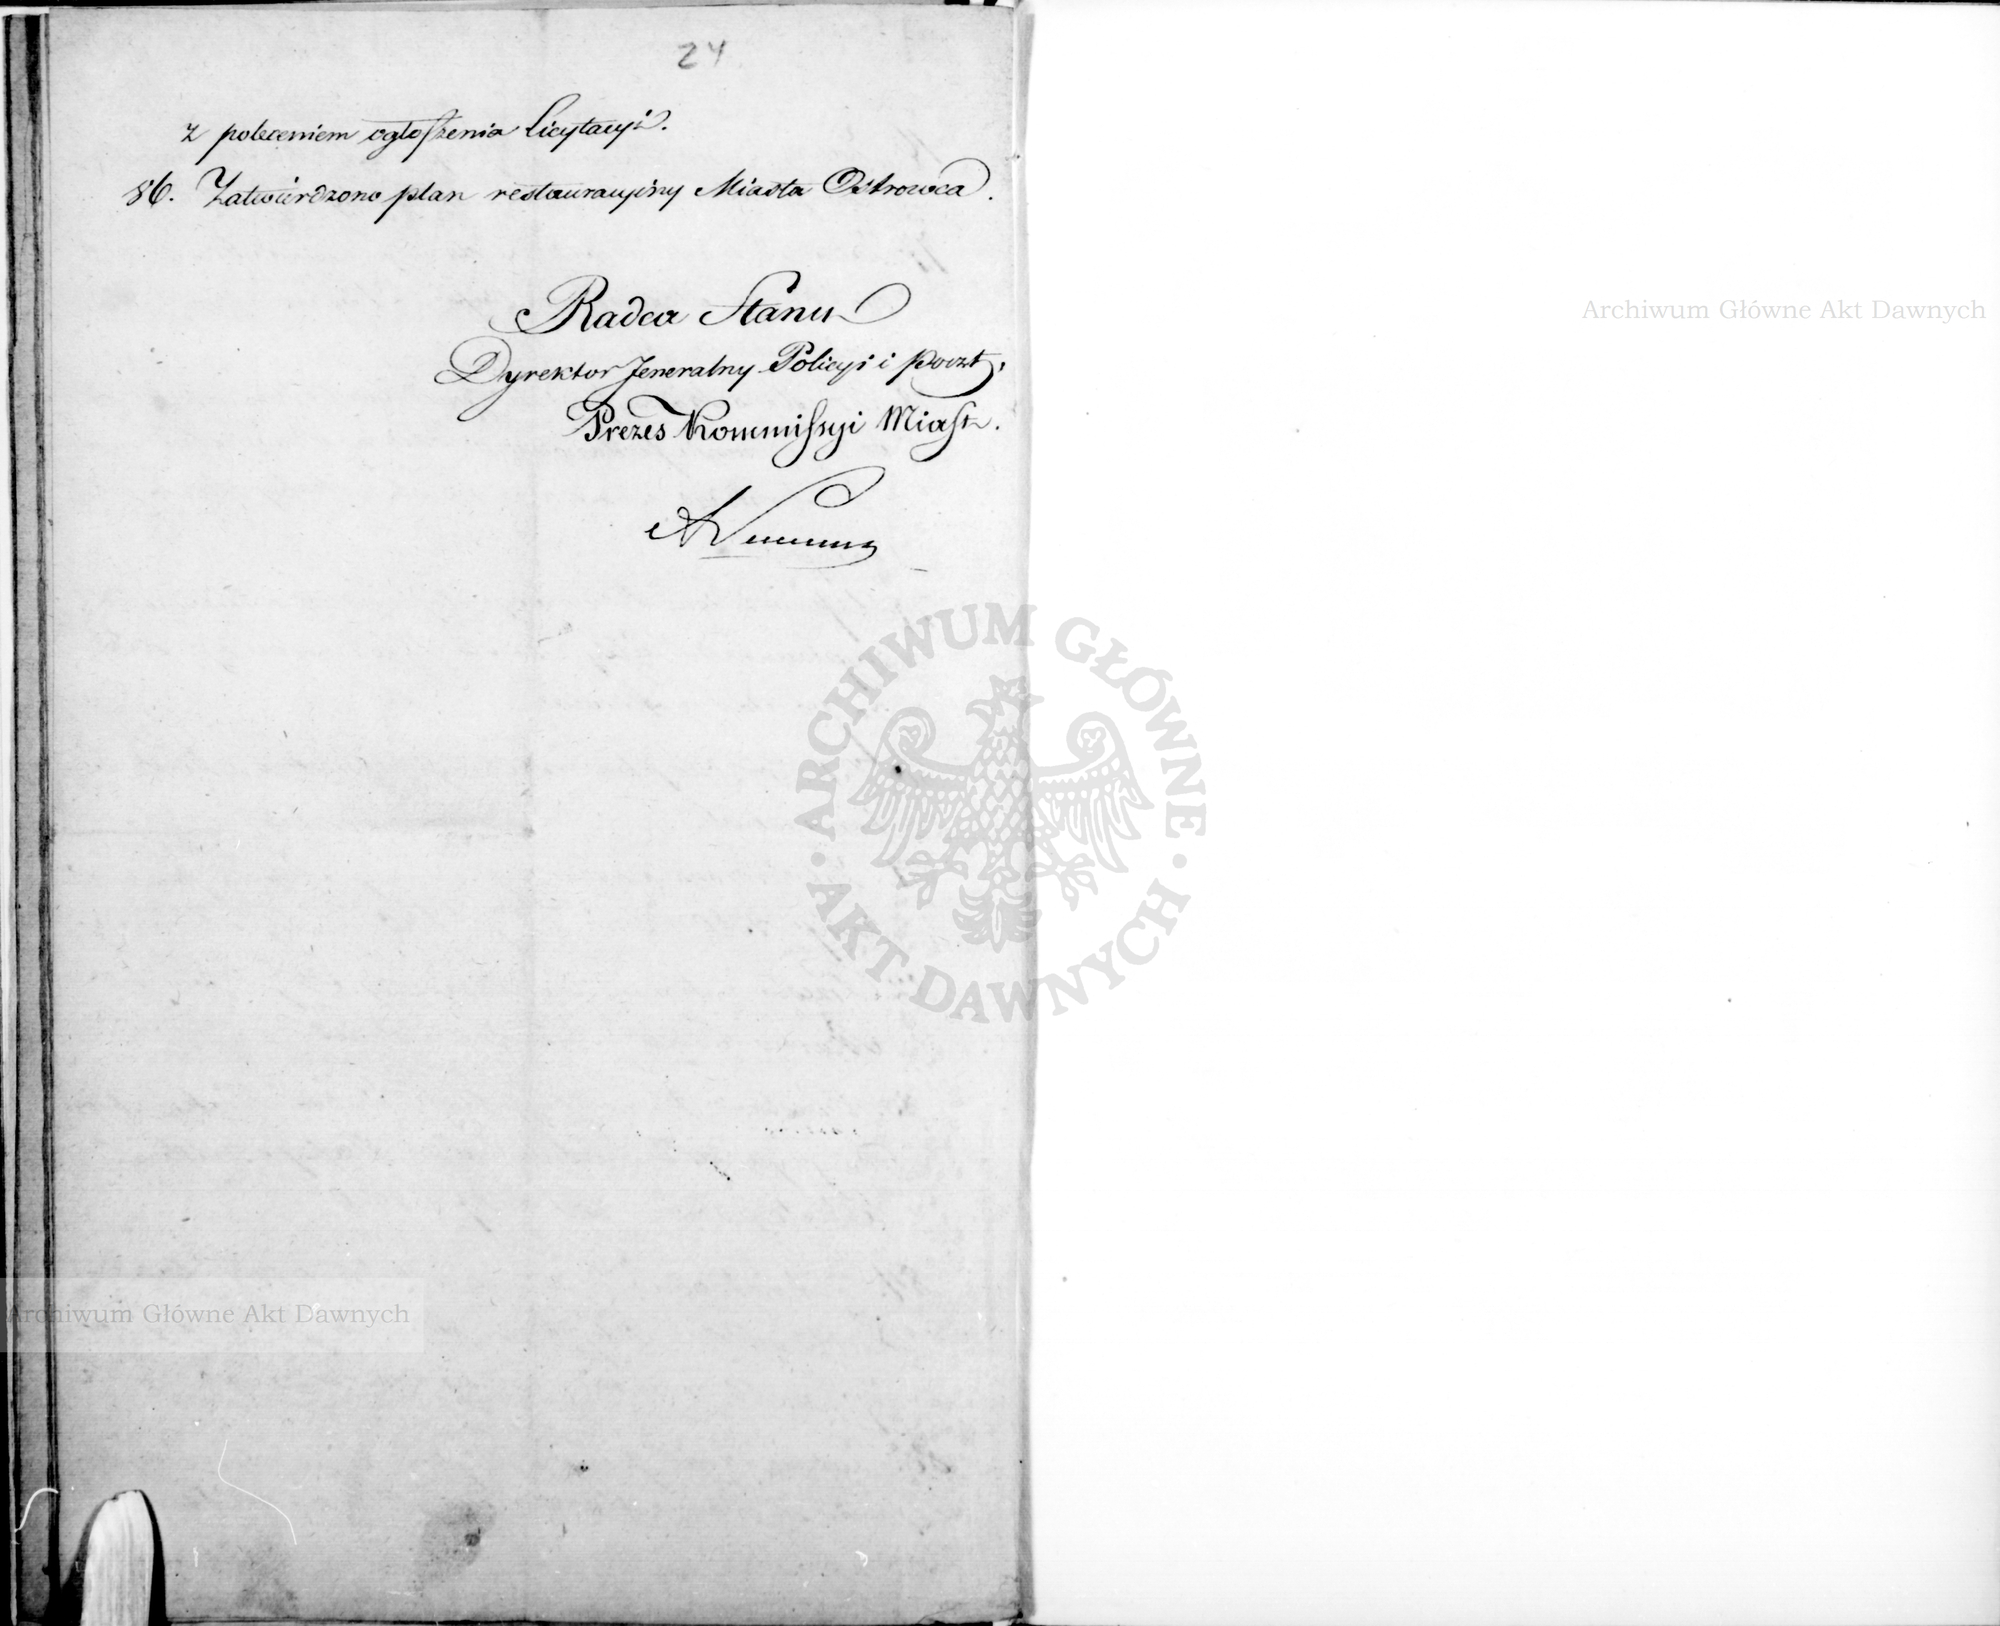 24
z poleceniem ogłoszenia licytacyi.
86. Zatwierdzono plan restauracyiny Miasta Ostrowca.
Radca Stanu
Dyrektor Jeneralny Policyi i Poczt,
Prezes Kommissyi Miast.
Archiwum Główne Akt Dawnych
ARCHIWUM GŁÓWNE AKT DAWNYCH
Archiwum Główne Akt Dawnych